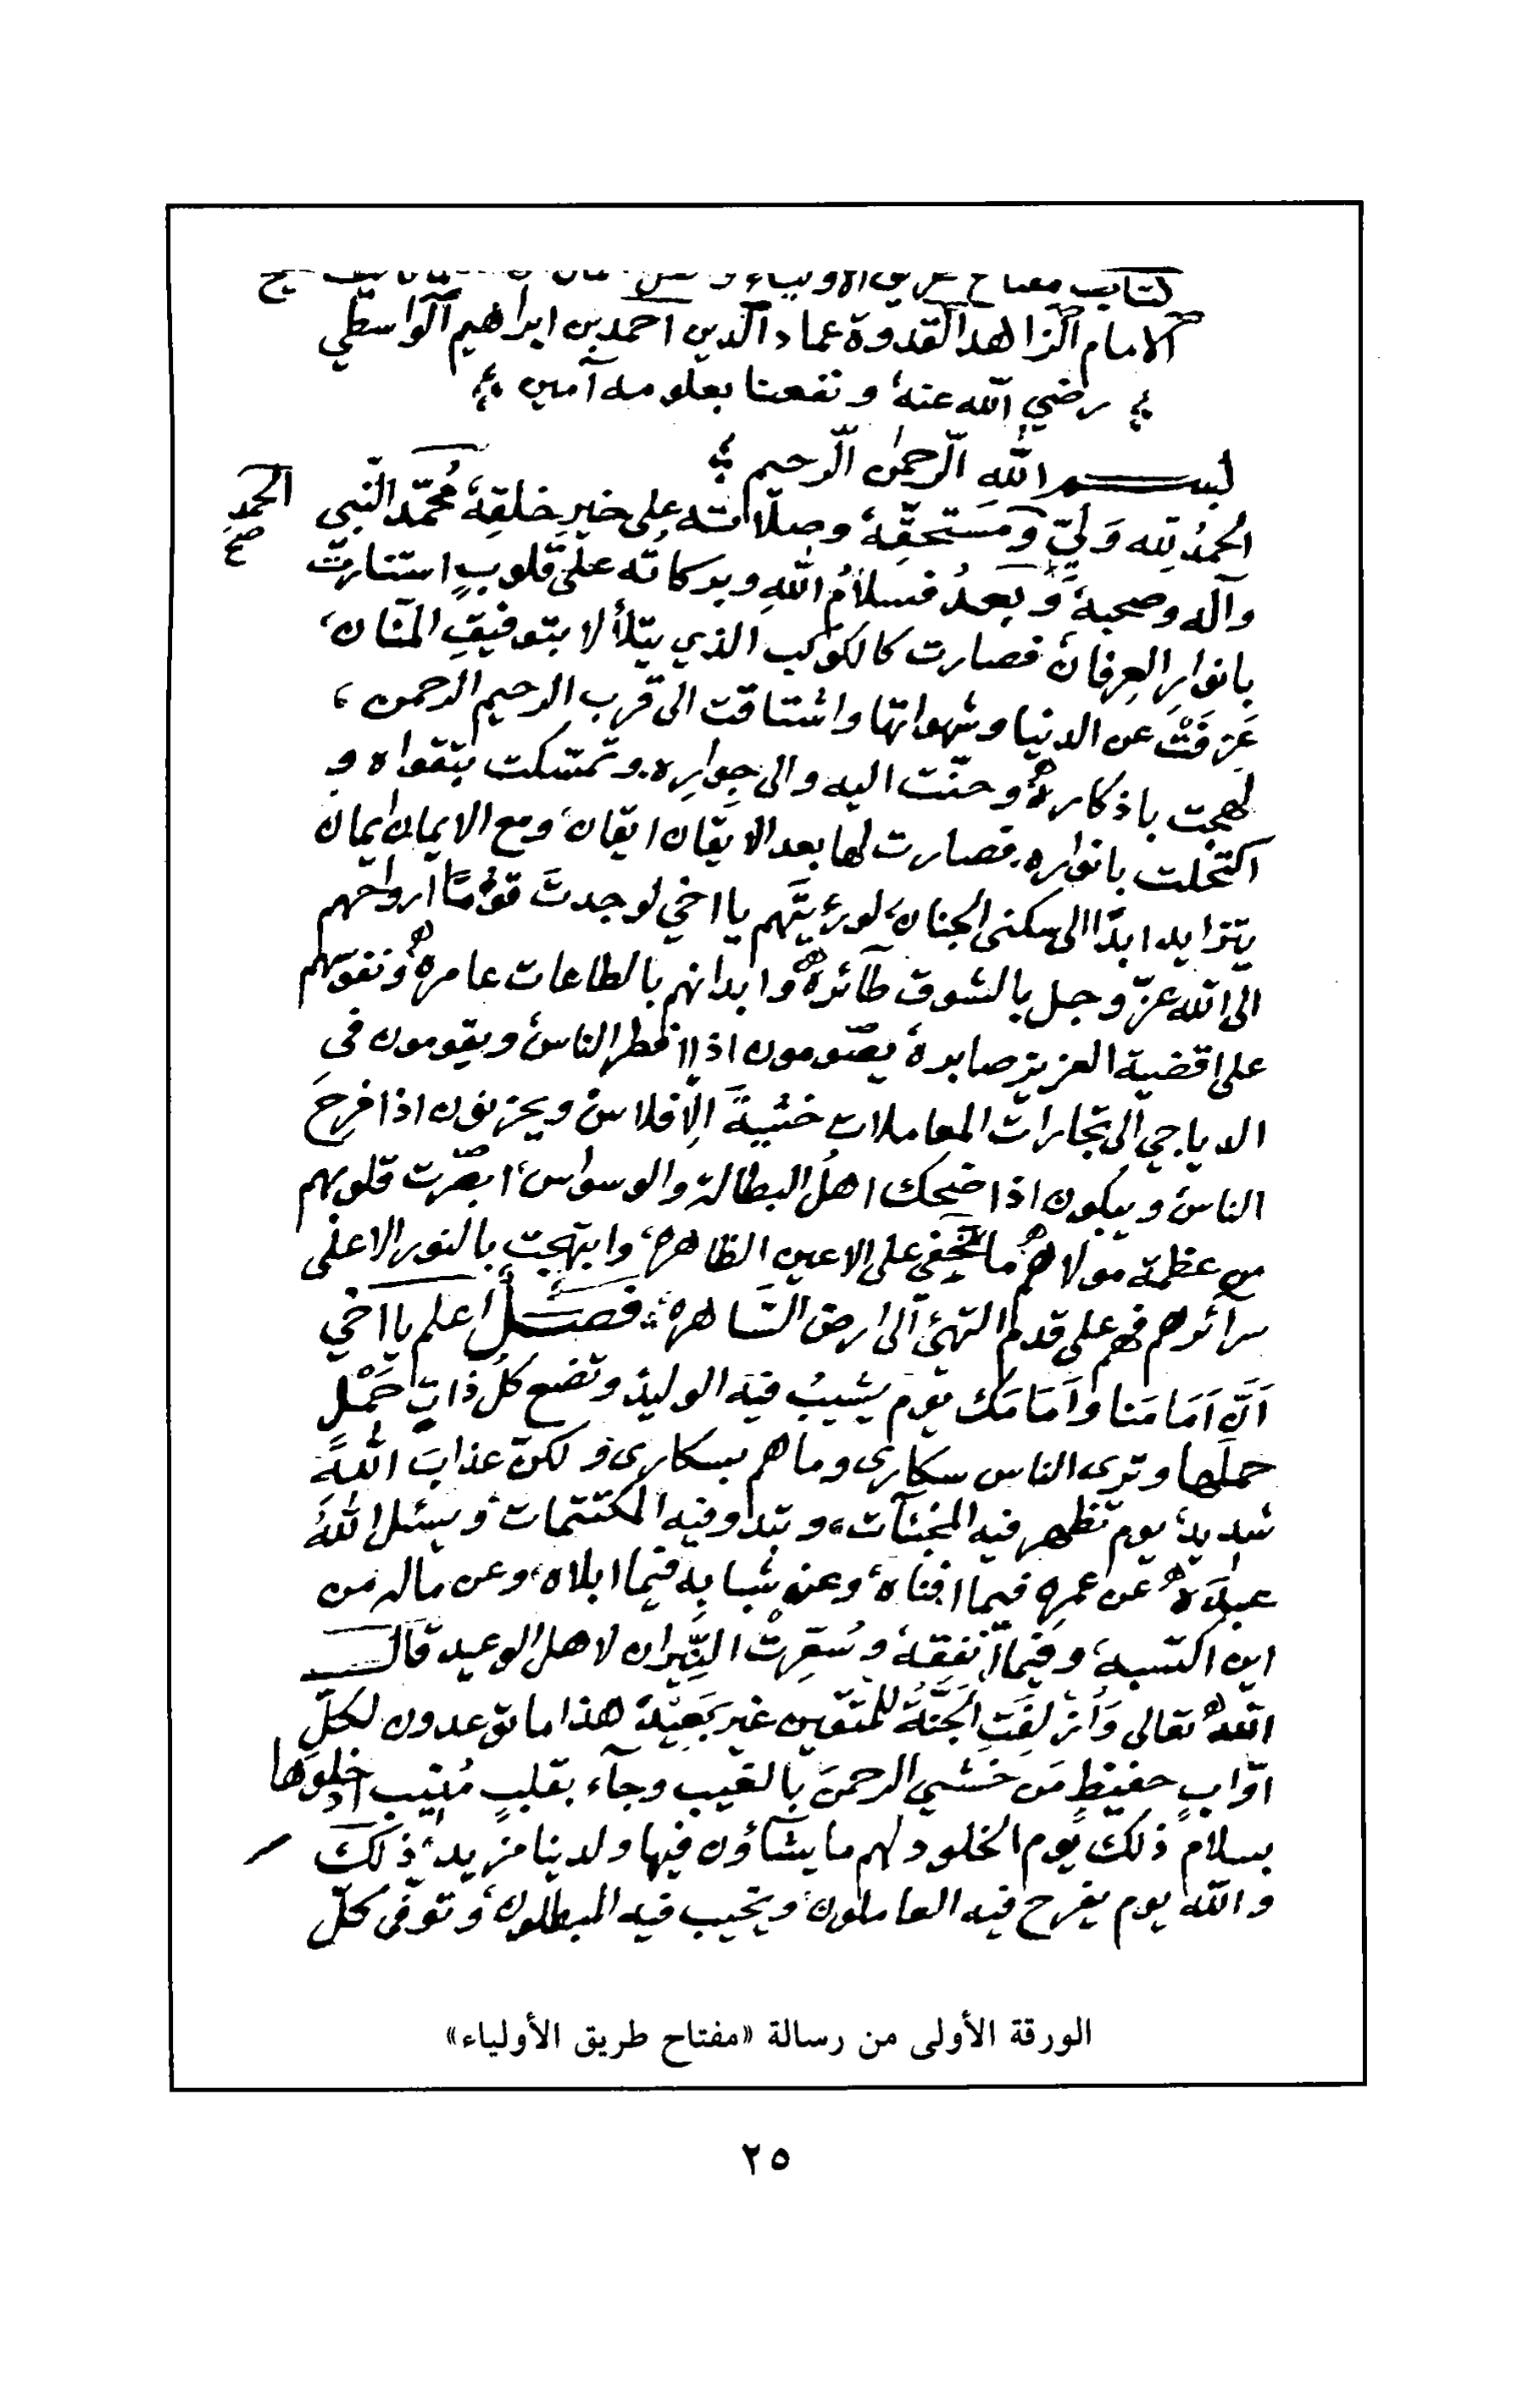 كتاب مفتاح طريق الاولياء
الامام الزاهد القدوة عماد الدين احمد بن ابراهيم الواسطي
رضي الله عنه ونفعنا بعلومه آمين
بسم الله الرحمن الرحيم
الحمدُ لله وَليّ وَمستحقِّهٖ وصلاته على خيرِ خلقِهٖ مُحمّد النّبي
الحمد
صح
وآله وصحبهٖ وَبعدُ فسلامُ اللهِ وبركاته على قلوبٍ استنارت
بانوارِ العِرفان فصارت كالكوكب الذي يتلألا بتوفيقِ المنّان،
عَزَفَتْ عن الدنيا وشهواتها واشتاقت الى قرب الرحيم الرحمن،
لهجت باذكاره وحنّت اليه والى جِوارِه. وتمسّكت بتقواه و
اكتحلت بانواره. فصارت لها بعد الايقان ايقان، ومع الايمان ايمان
يتزايد ابدًا الى سكنى الجنان، لو رءيتَهم يا اخي لوجدتَ قومًا ارواحهم
الى الله عزّ وجل بالشوق طآئره وابدانهم بالطاعات عامره ونفوسهم
على اقضية العزيز صابره، يصومون اذا افطر الناس، ويقومون في
الدياجي الى تجارات المعاملات خشيةَ الاِفلاس، ويحزنون اذا فرحَ
الناس، ويبكون اذا ضحك اهلُ البطالة والوسواس، ابصرت قلوبهم
من عظمة مولاهم ما تخفى على الاعين الظاهره، وابتهجت بالنور الاعلى
سرآئرهم فهم على قدم التهيّئ الى ارض السّاهره، فصل اعلم يا اخي
اَنّ اَمَامَنا واَمَامَك يوم يشيبُ فيه الوليدُ وتضع كلُ ذاتِ حَمْلٍ
حملها وترى الناس سكارى وما هم بسكارى ولكنّ عذابَ اللهِ
شديد، يوم تظهر فيه المخبّآت، وتبدو فيه المكتتمات، ويسئل اللهُ
عبدَه عن عمرِه فيما افناه، وعن شبابِه فيما ابلاه، وعن ماله من
اين اكتسبه، وفيما اَنفقه، وسُعّرتْ النِّيران لاهل الوعيد قالـــ
الله تعالى وَأُزلفَتِ الجَنَّةُ للمتّقين غير بَعِيْدٍ هذا ما توعدون لكلِّ
اوّابٍ حفيظٍ مَن خَشي الرحمنَ بالغيبِ وجآء بقلبٍ مُنيبٍ ادخلوها
بسلامٍ ذلك يوم الخلود لهم ما يشآؤن فيها ولدينا مزيد، ذلكَ
والله يوم يفرح فيه العاملون، ويخيب فيه المبطلون، وتوفّى كلّ
الورقة الأولى من رسالة «مفتاح طريق الأولياء»
٢٥